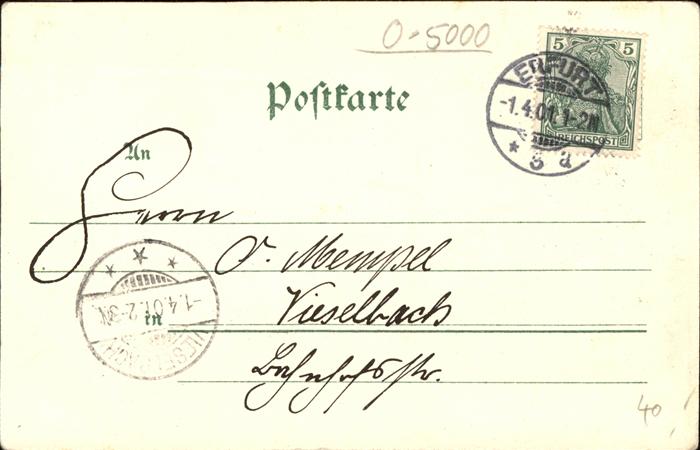 0-5000
5 5
REICHSPOST
ERFURT
-1.4.01.1-2N
* 3 a
Postkarte
An
Herrn
O. Mempel
in Vieselbach
Bahnhofsstr.
-1.4.01.2-3N.
VIESELBACH
40